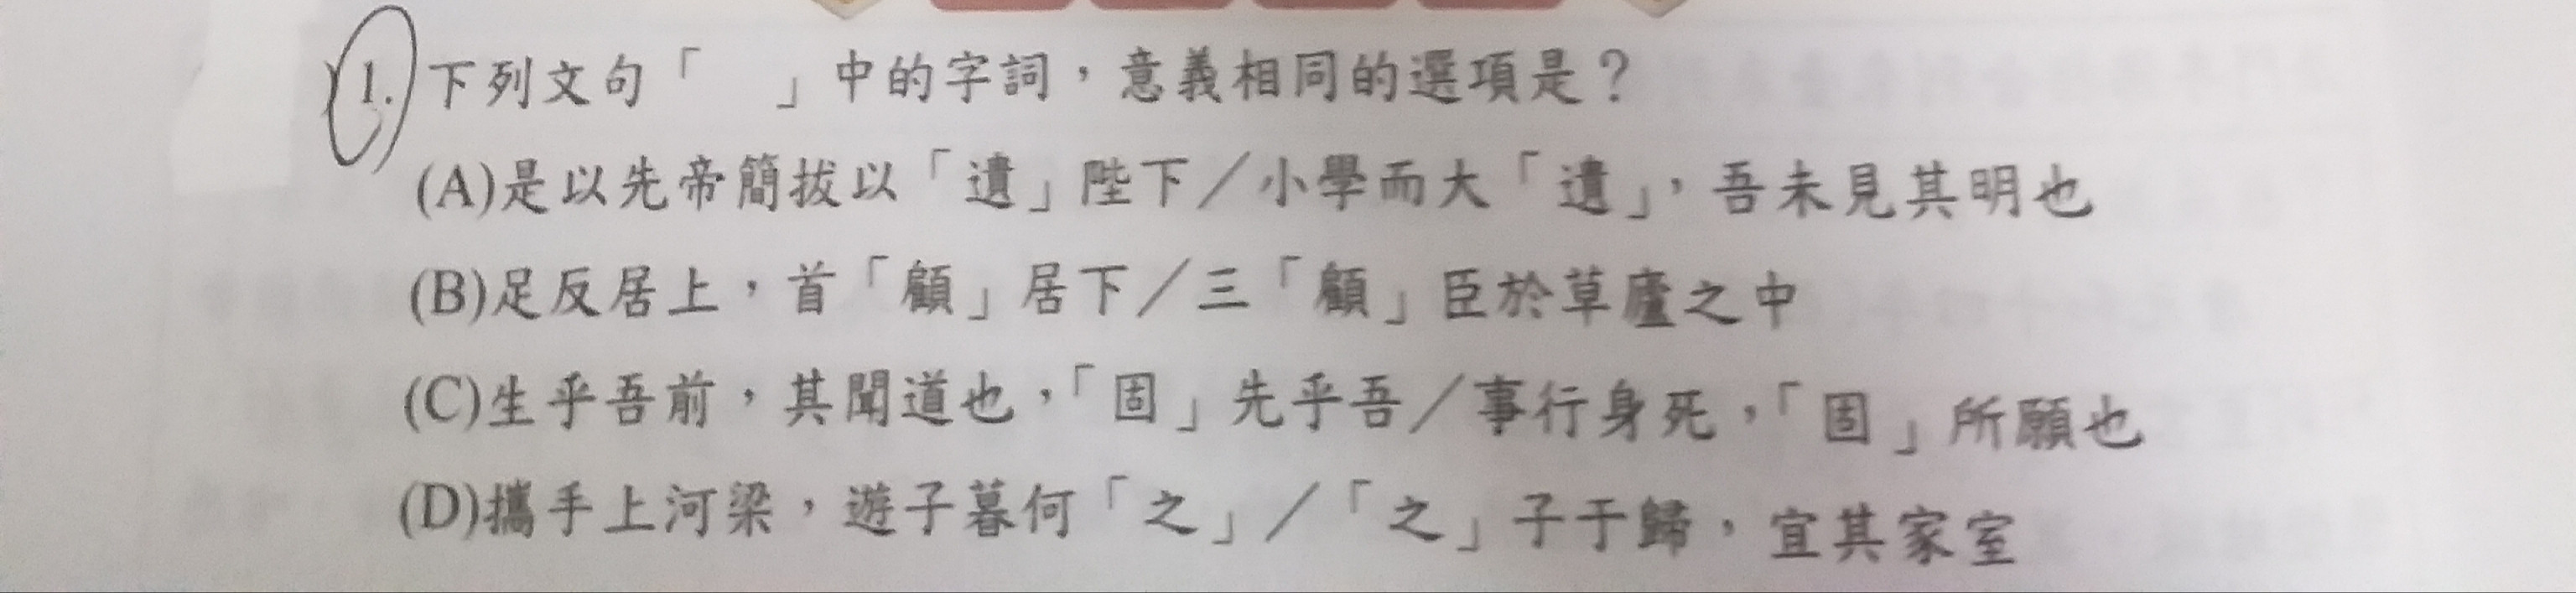 1. 下列文句「　」中的字詞，意義相同的選項是？
(A)是以先帝簡拔以「遺」陛下／小學而大「遺」，吾未見其明也
(B)足反居上，首「顧」居下／三「顧」臣於草廬之中
(C)生乎吾前，其聞道也，「固」先乎吾／事行身死，「固」所願也
(D)攜手上河梁，遊子暮何「之」／「之」子于歸，宜其家室